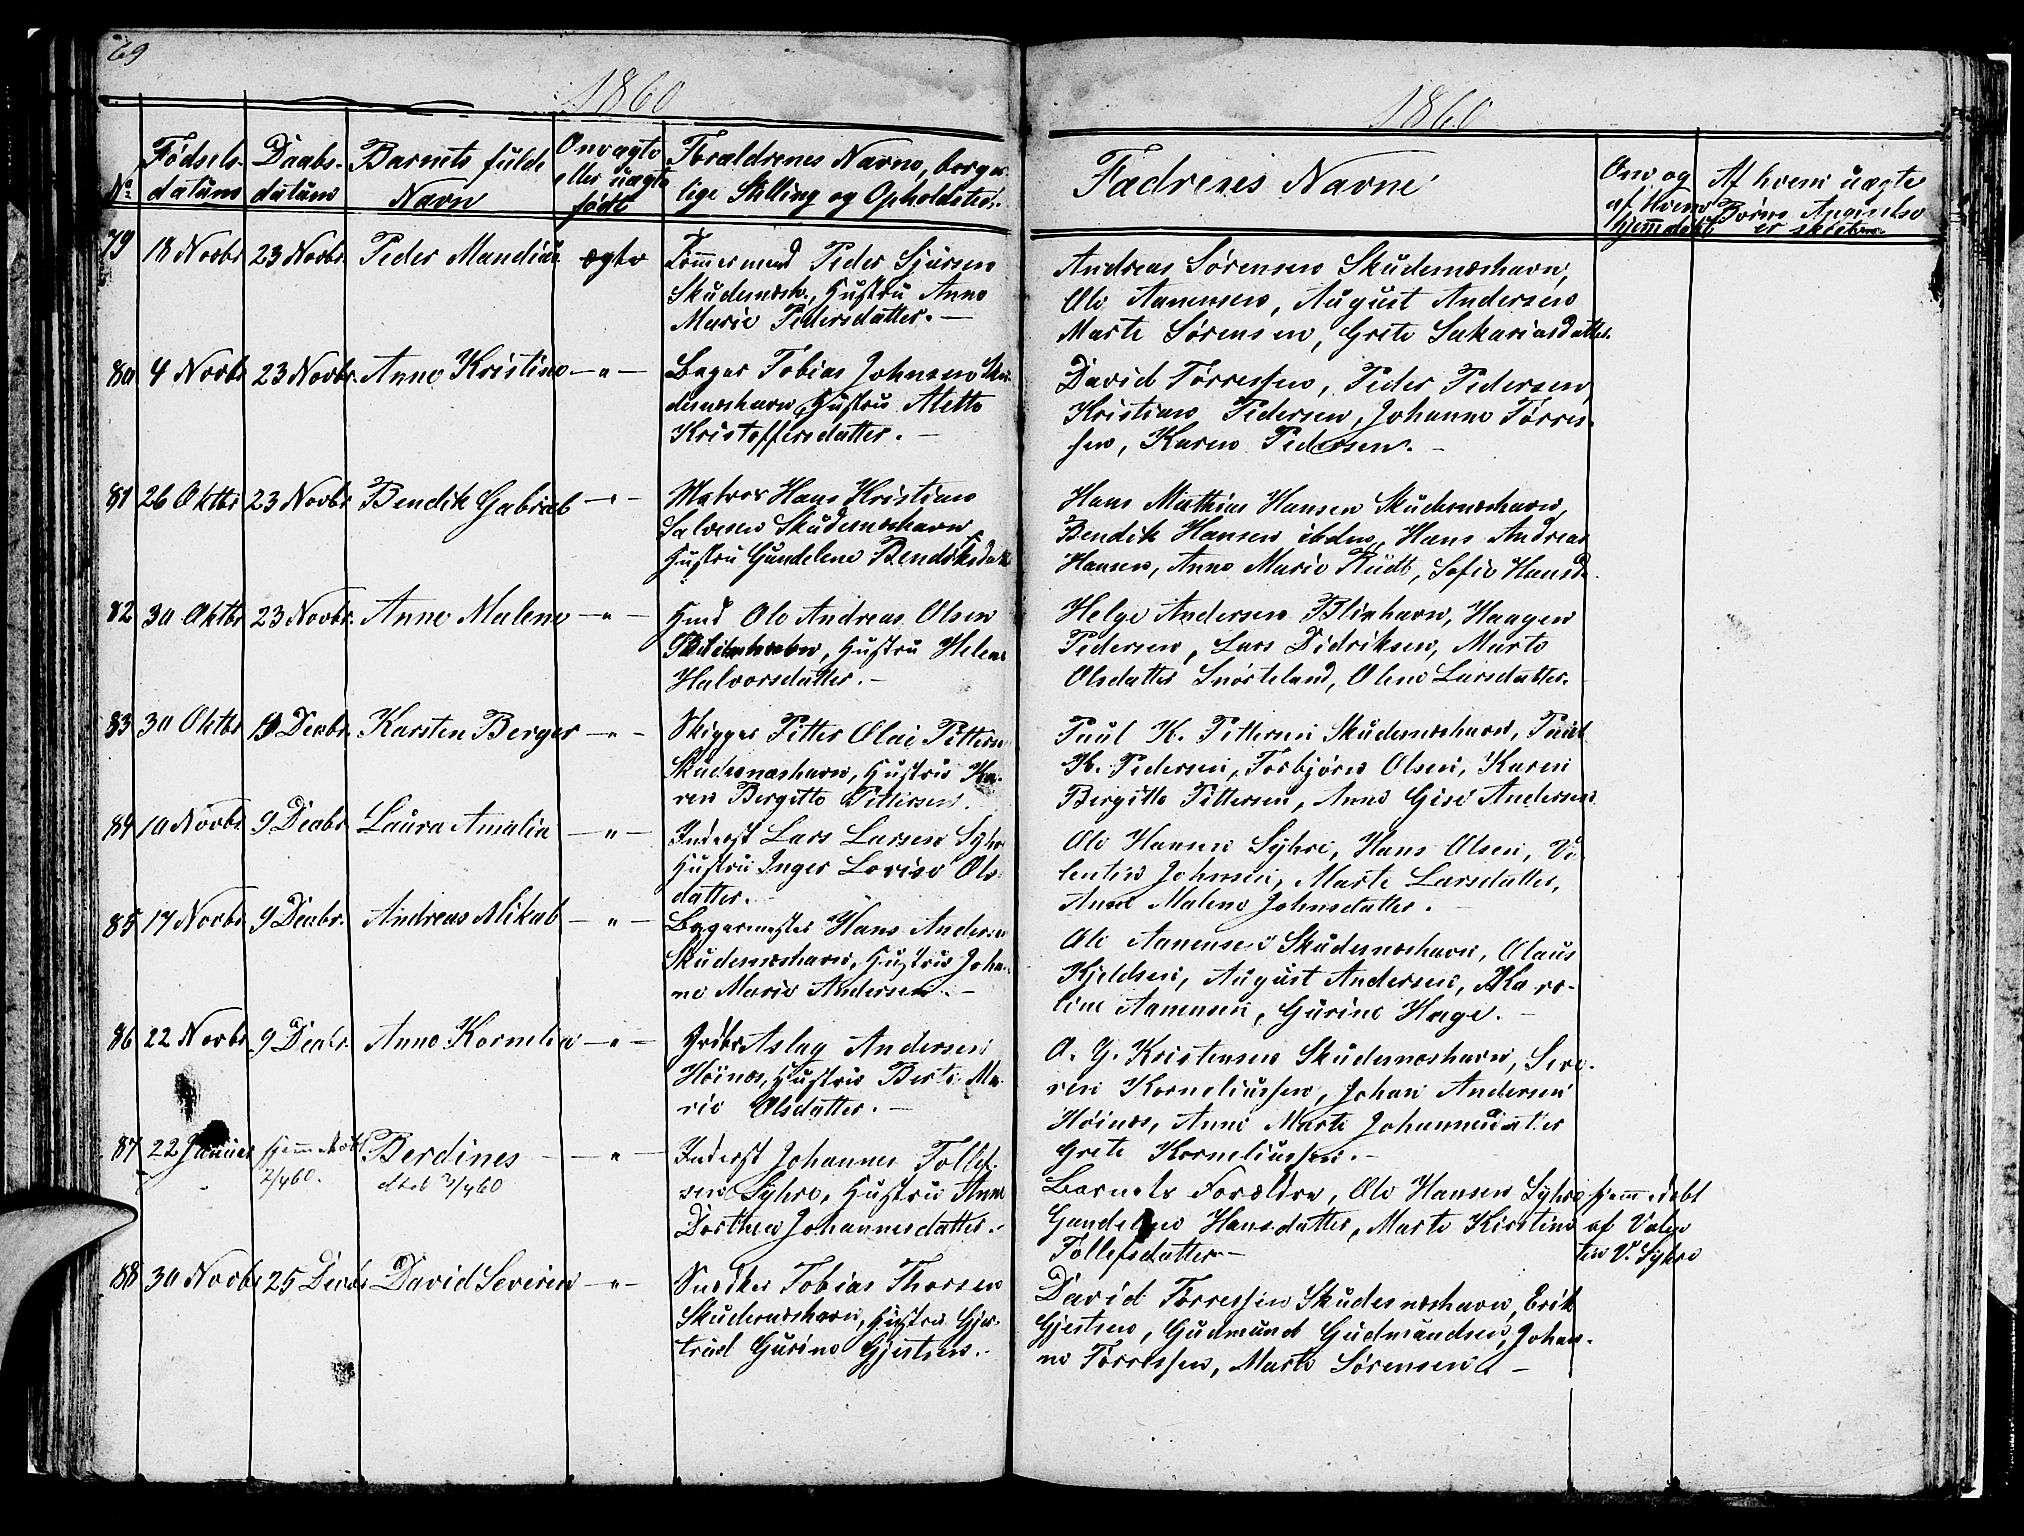 69
1860
1860
No
Fødsels-
datum
Daabs-
datum
Barnets fulde
Navn
Om ægte
eller uægte
født
Forældrenes Navne, borger
lige Stilling og Opholdsted.
Fadrenes Navne
Om og
af hvem
hjemmedøbt
Af hvem uægte
Børns Anmelse
er skreven
79 18 Novbr 23 Novbr Peder Mandius ægte
Tømmermand Peder Sjursen
Skudesnæsh., Hustru Anne
Marie Pedersdatter. —
Andreas Sørensen Skudesnæshavn,
Ole Aanensen, August Andersen
Marte Sørensen, Grete Sakariasdatter
80 4 Novbr 23 Novbr Anne Kristine — " —
Bager Tobias Johnsen Sku-
desnæshavn, Hustru Alette
Kristoffersdatter. —
David Torressen, Peder Pedersen,
Kristian Pedersen, Johanne Torres-
sen, Karen Pedersen. —
81 26 Oktbr 23 Novbr Bendik Gabriel — " —
Matros Hans Kristian
Salvesen Skudesnæshavn,
Hustru Gundelene Bendiksdat
Hans Mathias Hansen Skudesnæshavn,
Bendik Hansen ibdm, Hans Andreas
Hansen, Anne Marie Rüdt, Sofie Hansd.
82 30 Oktbr 23 Novbr. Anne Malene — " —
Hmd Ole Andreas Olsen
Hustru Helene
Halvorsdatter. —
Helge Andersen Blikshavn, Haagen
Pedersen, Lars Didriksen, Marte
Olsdatter Snørteland, Oline Larsdatter.
83 30 Oktbr 9 Decbr. Karsten Berger — " —
Skipper Pitter Olai Pittersen
Skudesnæshavn, Hustru Ka-
ren Birgitte Pittersen.
Paul K. Pittersen Skudesnæshavn, Paul
H. Pedersen, Torbjørn Olsen, Karen
Birgitte Pittersen, Anne Gise Andersen
84 10 Novbr 9 Decbr Laura Amalia — " —
Inderst Lars Larsen Syhre
Hustru Inger Lovise Ols-
datter. —
Ole Hansen Syhre, Hans Olsen, Va-
lentin Johnsen, Marte Larsdatter,
Anne Malene Johnsdatter. —
85 17 Novbr 9 Decbr. Andreas Mikal — " —
Bagermester Hans Andersen
Skudesnæshavn, Hustru Johan-
ne Marie Andersen. —
Ole Aanensen Skudesnæshavn, Olaus
Kjeldsen, August Andersen, Karo-
line Aanensen, Gurine Hage. —
86 22 Novbr 9 Decbr. Anne Kornelia — " —
Grdbr Aslag Andersen
Høines, Hustru Berte Ma-
rie Olsdatter. —
A. G. Kristensen Skudesnæshavn, Seve-
ren Korneliussen, Johan Andersen
Høines, Anne Marte Johannesdatter
Grete Korneliussen. —
87 22 Januar hjemmedøbt Berdines — " —
2/4 60.
død 3/4 60
Inderst Johannes Tollef-
sen Syhre, Hustru Anne
Dorthea Johannesdatter. —
Barnets Forældre, Ole Hansen Syhre
Gundeline Hansdatter, Marte Kirstine
Tollefsdatter —
hjemmedøbt
af Valen
tin V. Syhre
88 30 Novbr 25 Decbr David Severin — " —
Snedker Tobias Thorsen
Skudesnæshavn, Hustru Gjer-
trud Gurine Gjertsen. —
David Torressen Skudesnæshavn, Erik
Gjertsen, Gudmund Gudmundsen, Johan-
ne Torressen, Marte Sørensen —